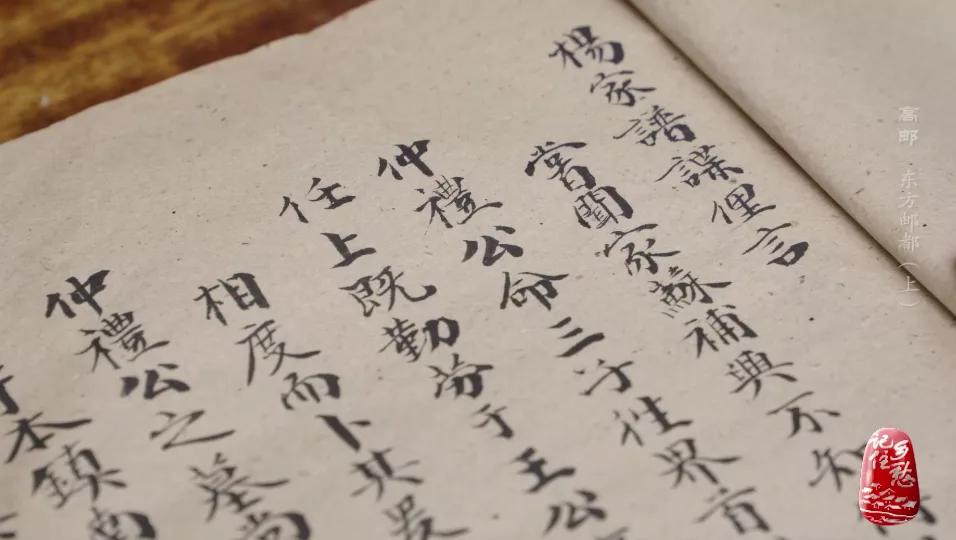 楊家譜諜俚言
嘗聞家蘇補興不知
仲禮公命三子往界首
任上既勤劳于王公
相度而卜其
仲禮公之墓尚
本鎮南
高邮 东方邮都（上）
记住乡愁